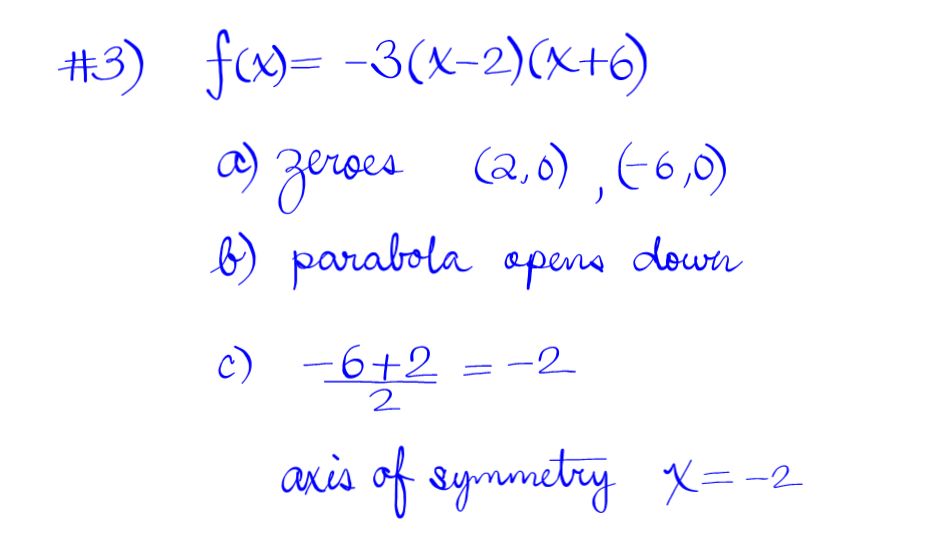 #3) f(x)= -3(x-2)(x+6)
a) zeroes (2,0) , (-6,0)
b) parabola opens down
c) \frac{-6+2}{2} = -2
axis of symmetry x = -2